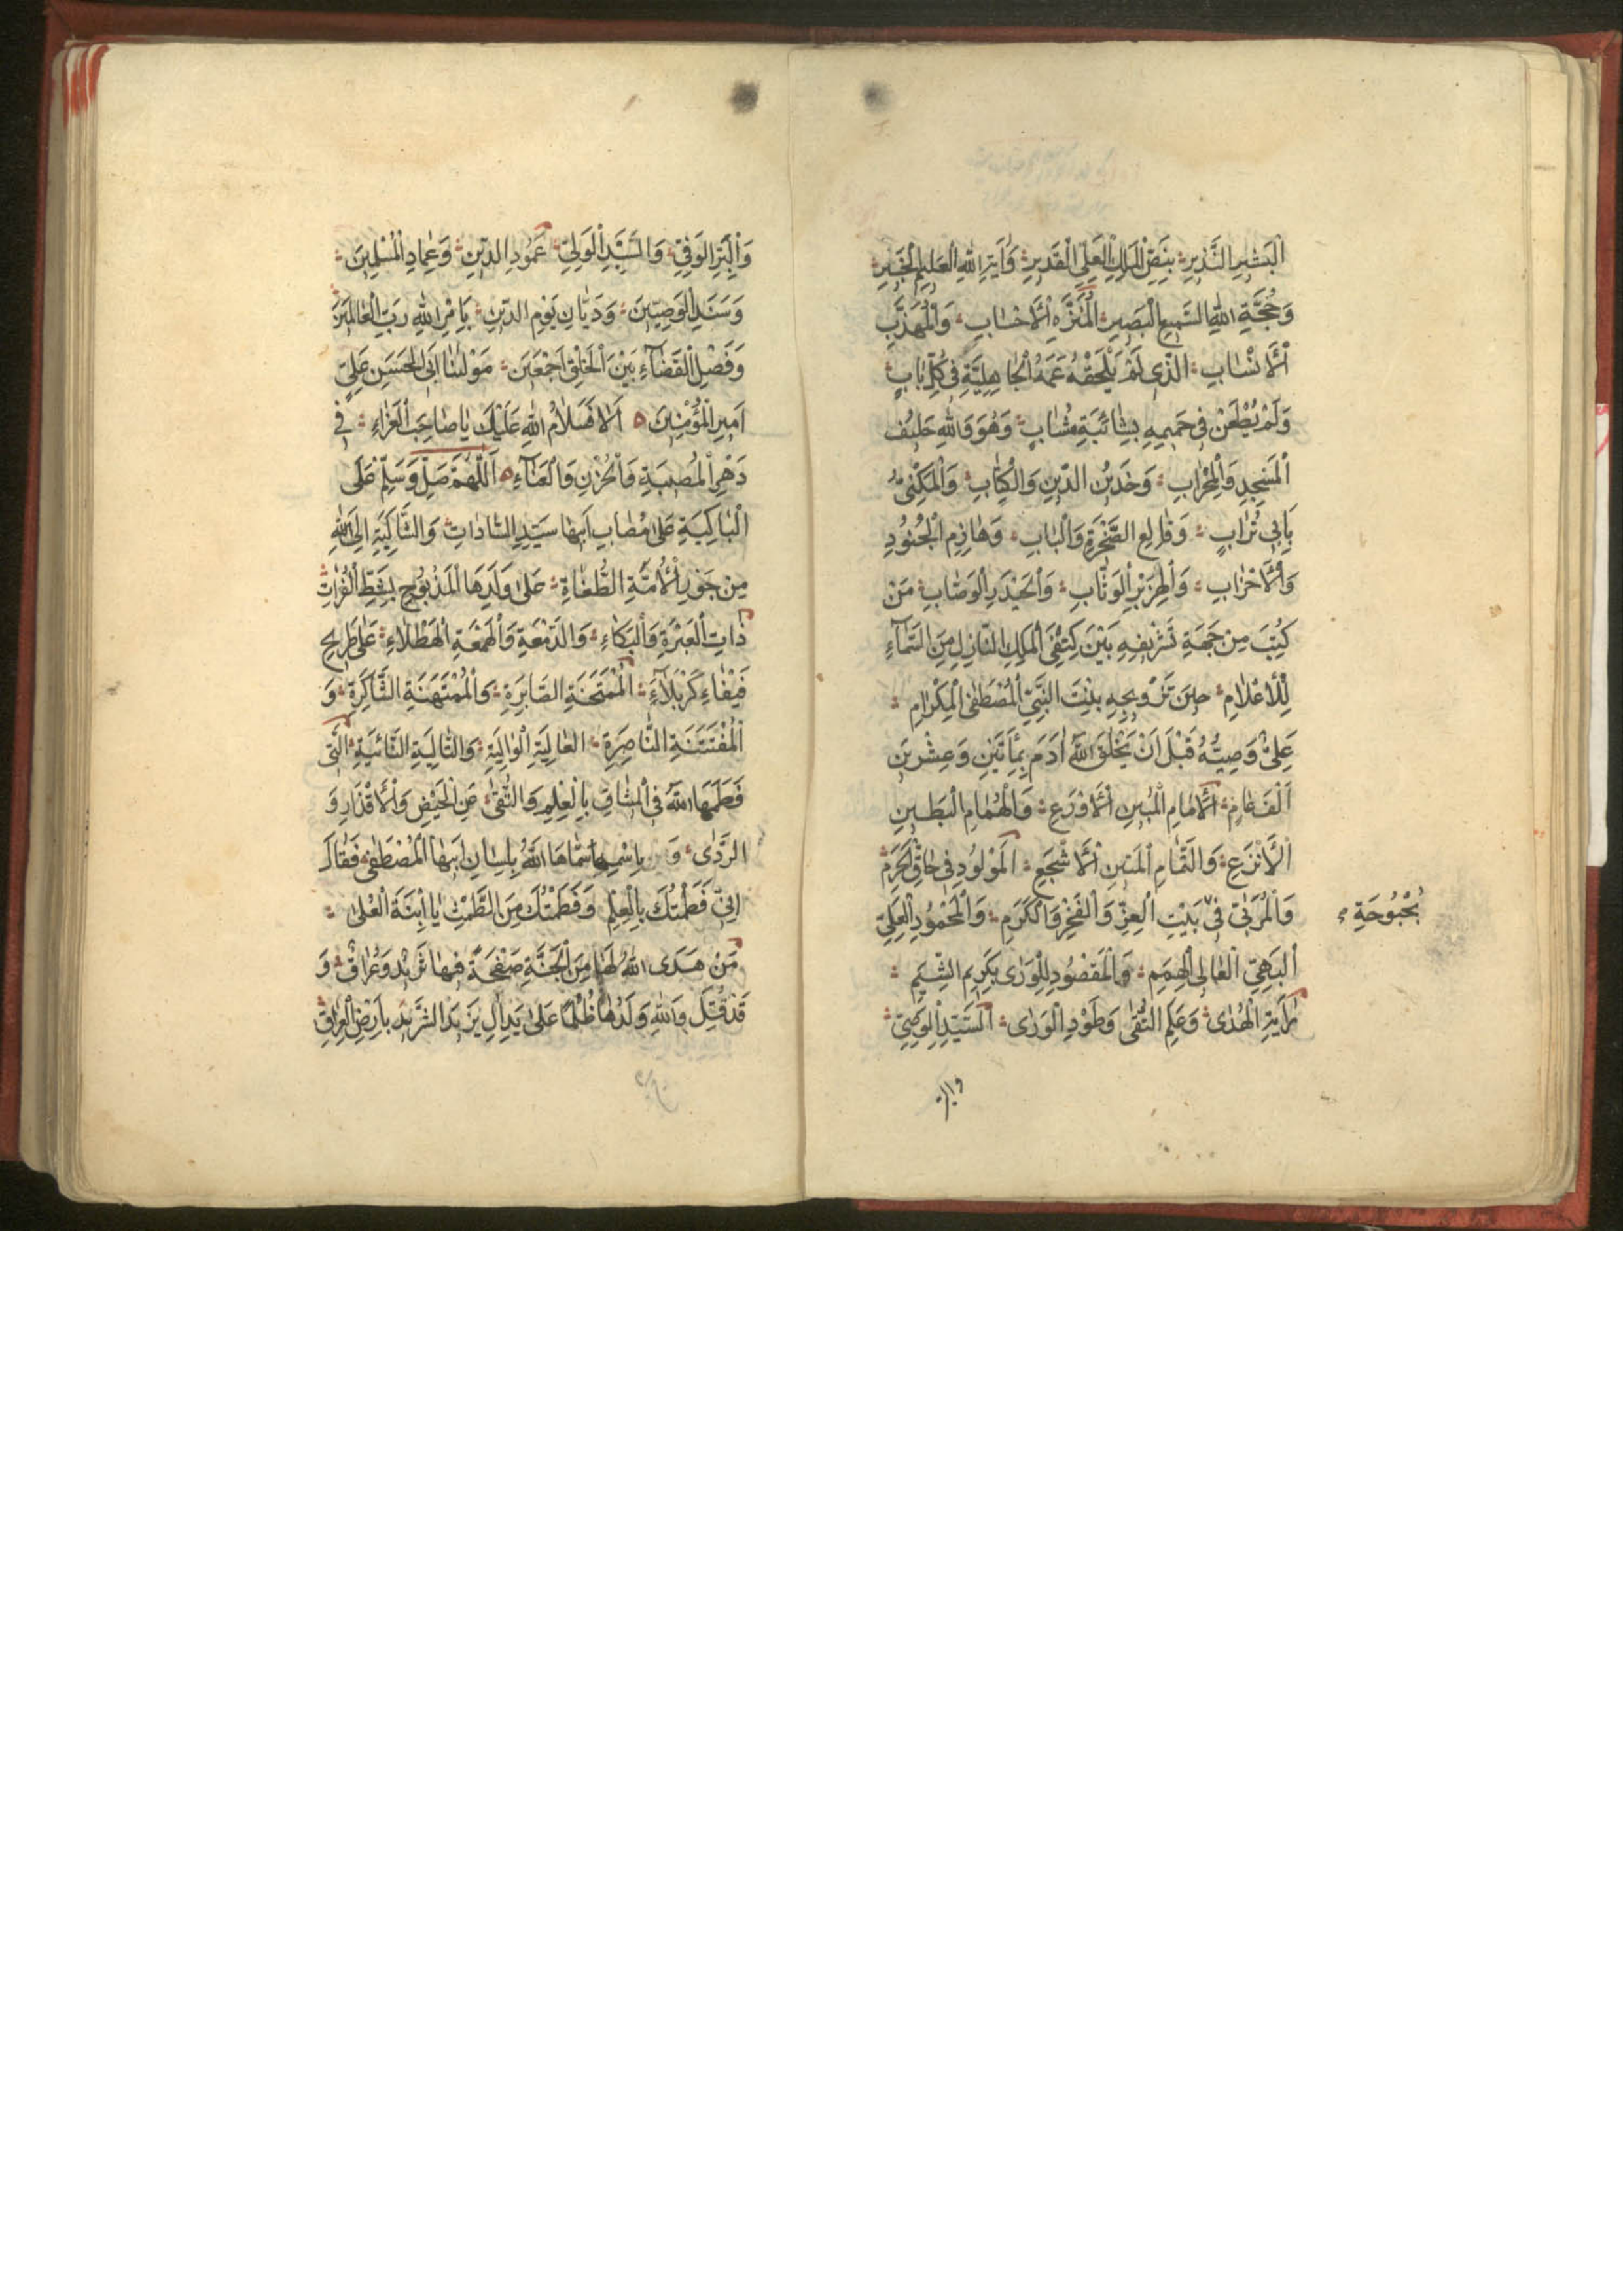 الْبَشيرِ النَّذيرِ بِنَصِّ الْمَلِكِ الْعَلِيِّ الْقَديرِ وَاٰيَةِ اللّٰهِ الْعَليمِ الْخَبيرِ
وَحُجَّةِ اللّٰهِ السَّميعِ الْبَصيرِ الْمُنَزَّهِ الْاَحْسٰابِ وَالْمُهَذَّبِ
الْاَنْسٰابِ الَّذي لَمْ يَلْحَقْهُ عَمَهُ الْجٰاهِلِيَّةِ في كُلِّ بٰابٍ
وَلَمْ يُطْعَنْ في حَميمِهِ بِشٰائِبَةِ مُشٰابٍ وَهُوَ وَاللّٰهِ حَليفُ
الْمَسْجِدِ وَالْمِحْرٰابِ وَخَدينُ الدّينِ وَالْكِتٰابِ وَالْمَكْنِيُّ
بِاَبي تُرٰابٍ وَقٰالِعِ الصَّخْرَةِ وَالْبٰابِ وَهٰازِمِ الْجُنُودِ
وَالْاَحْزٰابِ وَالْهِزَبْرِ الْوَثّٰابِ وَالْحَيْدَرِ الْوَصّٰابِ مَنْ
كُتِبَ مِنْ جَهَةِ تَشْريفِهِ بَيْنَ كِتْفَيِ الْمَلِكِ النّٰازِلِ مِنَ السَّمٰآءِ
لِلْاِعْلٰامِ حينَ تَزْويجِهِ بِنْتَ النَّبِيِّ الْمُصْطَفَى الْمِكْرٰامِ
عَلِيٌّ وَصِيُّهُ قَبْلَ اَنْ يَخْلُقَ اللّٰهُ اٰدَمَ بِمِأَتَيْنِ وَعِشْرينَ
اَلْفَ عٰامٍ الْاِمٰامِ الْمُبينِ الْاَوْرَعِ وَالْهُمٰامِ الْبَطينِ
الْاَنْزَعِ وَالتَّمٰامِ الْمَتينِ الْاَشْجَعِ الْمَوْلُودِ في حٰاقِّ الْحَرَمِ
وَالْمُرَبّٰى في بَيْتِ الْعِزِّ وَالْفَخْرِ وَالْكَرَمِ وَالْمَحْمُودِ الْعَلِيِّ
بُحْبُوحَةِ
الْبَهِيِّ الْعٰالِي الْهِمَمِ وَالْمَقْصُودِ لِلْوَرٰى بِكَريمِ الشِّيَمِ
رٰايَةِ الْهُدٰى وَعَلَمِ التُّقٰى وَطَوْدِ الْوَرٰى السَّيِّدِ الْوَصِيِّ
والبر
وَالْبَرِّ الْوَفِيِّ وَالسَّيِّدِ الْوَلِيِّ عَمُودِ الدّينِ وَعِمٰادِ الْمُسْلِمينَ
وَسَنَدِ الْوَصِيّينَ وَدَيّٰانِ يَوْمِ الدّينِ بِاَمْرِ اللّٰهِ رَبِّ الْعٰالَمينَ
وَفَصْلِ الْقَضٰآءِ بَيْنَ الْخَلْقِ اَجْمَعينَ مَوْلٰنٰا اَبِي الْحَسَنِ عَلِيٍّ
اَميرِ الْمُؤْمِنينَ اَلٰا فَسَلٰامُ اللّٰهِ عَلَيْكَ يٰا صٰاحِبَ الْعَزٰاءِ في
دَهْرِ الْمُصيبَةِ وَالْحُزْنِ وَالْعَنٰآءِ اَللّٰهُمَّ صَلِّ وَسَلِّمْ عَلَى
الْبٰاكِيَةِ عَلٰى مُصٰابِ اَبيهٰا سَيِّدِ السّٰادٰاتِ وَالشّٰاكِيَةِ اِلَى اللّٰهِ
مِنْ جَوْرِ الْاُمَّةِ الطُّغٰاةِ عَلٰى وَلَدِهَا الْمَذْبُوحِ بِشَطِّ الْفُرٰاتِ
ذٰاتِ الْعَبْرَةِ وَالْبُكٰاءِ وَالدَّمْعَةِ وَالْهَمْعَةِ الْهَطْلٰاءِ عَلٰى طَريحِ
فَيْفٰاءِ كَرْبَلٰآءَ الْمُمْتَحَنَةِ الصّٰابِرَةِ وَالْمُمْتَهَنَةِ الشّٰاكِرَةِ وَ
الْمُفْتَتَنَةِ النّٰاصِرَةِ الْعٰالِيَةِ الْوٰالِيَةِ وَالتّٰالِيَةِ الثّٰانِيَةِ الَّتي
فَطَمَهَا اللّٰهُ فِي الْمِيثٰاقِ بِالْعِلْمِ وَالتُّقٰى عَنِ الْحَيْضِ وَالْاَقْذٰارِ وَ
الرَّدٰى وَ بِاسْمِهٰا سَمّٰاهَا اللّٰهُ بِلِسٰانِ اَبيهَا الْمُصْطَفٰى فَقٰالَ
اِنّي فَطَمْتُكَ بِالْعِلْمِ وَفَطَمْتُكَ مِنَ الطَّمْثِ يَا ابْنَةَ الْعُلٰى
مَنْ هَدَى اللّٰهُ لَهٰا مِنَ الْجَنَّةِ صَفْحَةً فيهٰا ثَريدٌ وَعُرٰاقٌ وَ
قَدْ قُتِلَ وَاللّٰهِ وَلَدُهٰا ظُلْمًا عَلٰى يَدِ اٰلِ يَزيدَ الشَّريدِ بِاَرْضِ الْعِرٰاقِ